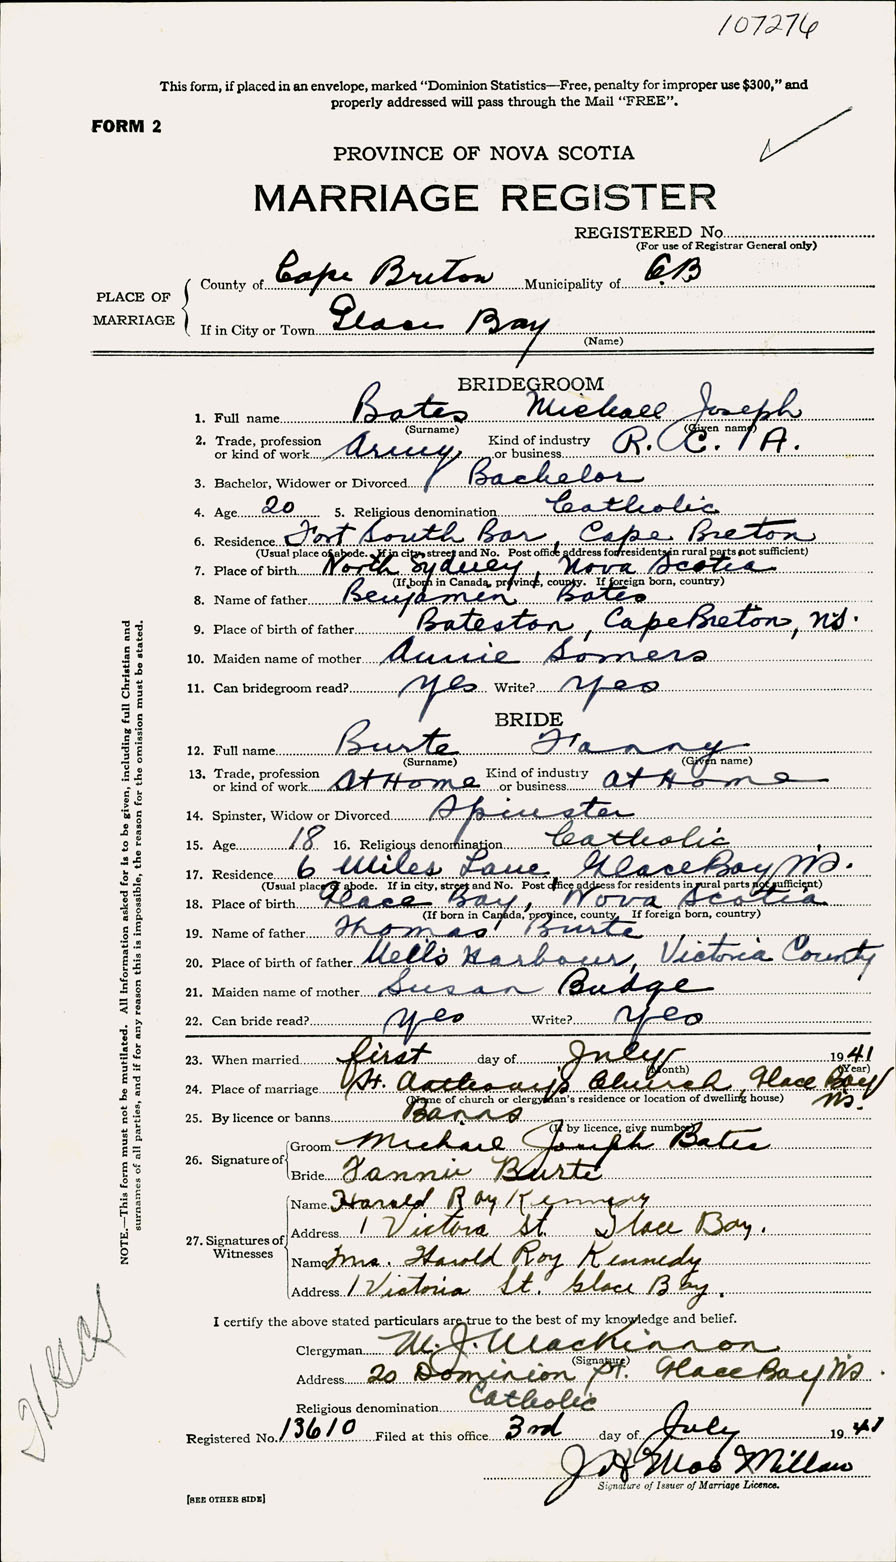 107276
This form, if placed in an envelope, marked "Dominion Statistics—Free, penalty for improper use $300," and
properly addressed will pass through the Mail "FREE".
FORM 2
PROVINCE OF NOVA SCOTIA
MARRIAGE REGISTER
REGISTERED No.
(For use of Registrar General only)
PLACE OF MARRIAGE
County of Cape Breton Municipality of C.B
If in City or Town Glace Bay
(Name)
BRIDEGROOM
1. Full name Bates Michael Joseph
(Surname) (Given name)
2. Trade, profession or kind of work Army Kind of industry or business R.C.A.
3. Bachelor, Widower or Divorced Bachelor
4. Age 20 5. Religious denomination Catholic
6. Residence Fort South Bar, Cape Breton
(Usual place of abode. If in city, street and No. Post office address for residents in rural parts not sufficient)
7. Place of birth North Sydney, Nova Scotia
(If born in Canada, province, county. If foreign born, country)
8. Name of father Benjamen Bates
9. Place of birth of father Bateston, Cape Breton, N.S.
10. Maiden name of mother Annie Somers
11. Can bridegroom read? yes Write? yes
BRIDE
12. Full name Burte Fanny
(Surname) (Given name)
13. Trade, profession or kind of work At Home Kind of industry or business at Home
14. Spinster, Widow or Divorced Spinster
15. Age 18 16. Religious denomination Catholic
17. Residence 6 Miles Lane, Glace Bay N.S.
(Usual place of abode. If in city, street and No. Post office address for residents in rural parts not sufficient)
18. Place of birth Glace Bay, Nova Scotia
(If born in Canada, province, county. If foreign born, country)
19. Name of father Thomas Burte
20. Place of birth of father Harbour, Victoria County
21. Maiden name of mother Susan Budge
22. Can bride read? yes Write? yes
23. When married first day of July 1941
(Month) (Year)
24. Place of marriage St. Anthony's Church, Glace Bay N.S.
(Name of church or clergyman's residence or location of dwelling house)
25. By licence or banns Banns
(If by licence, give number)
26. Signature of
Groom Michael Joseph Bates
Bride Fannie Burte
27. Signatures of Witnesses
Name Harold Roy Kennedy
Address 1 Victoria St. Glace Bay.
Name Mrs. Harold Roy Kennedy
Address 1 Victoria St. Glace Bay.
I certify the above stated particulars are true to the best of my knowledge and belief.
Clergyman M. J. MacKinnon
(Signature)
Address 20 Dominion St. Glace Bay N.S.
Religious denomination Catholic
Registered No. 13610 Filed at this office 3rd day of July 1941
J H MacMillan
Signature of Issuer of Marriage Licence.
[SEE OTHER SIDE]
NOTE.—This form must not be mutilated. All Information asked for is to be given, including full Christian and
surnames of all parties, and if for any reason this is impossible, the reason for the omission must be stated.